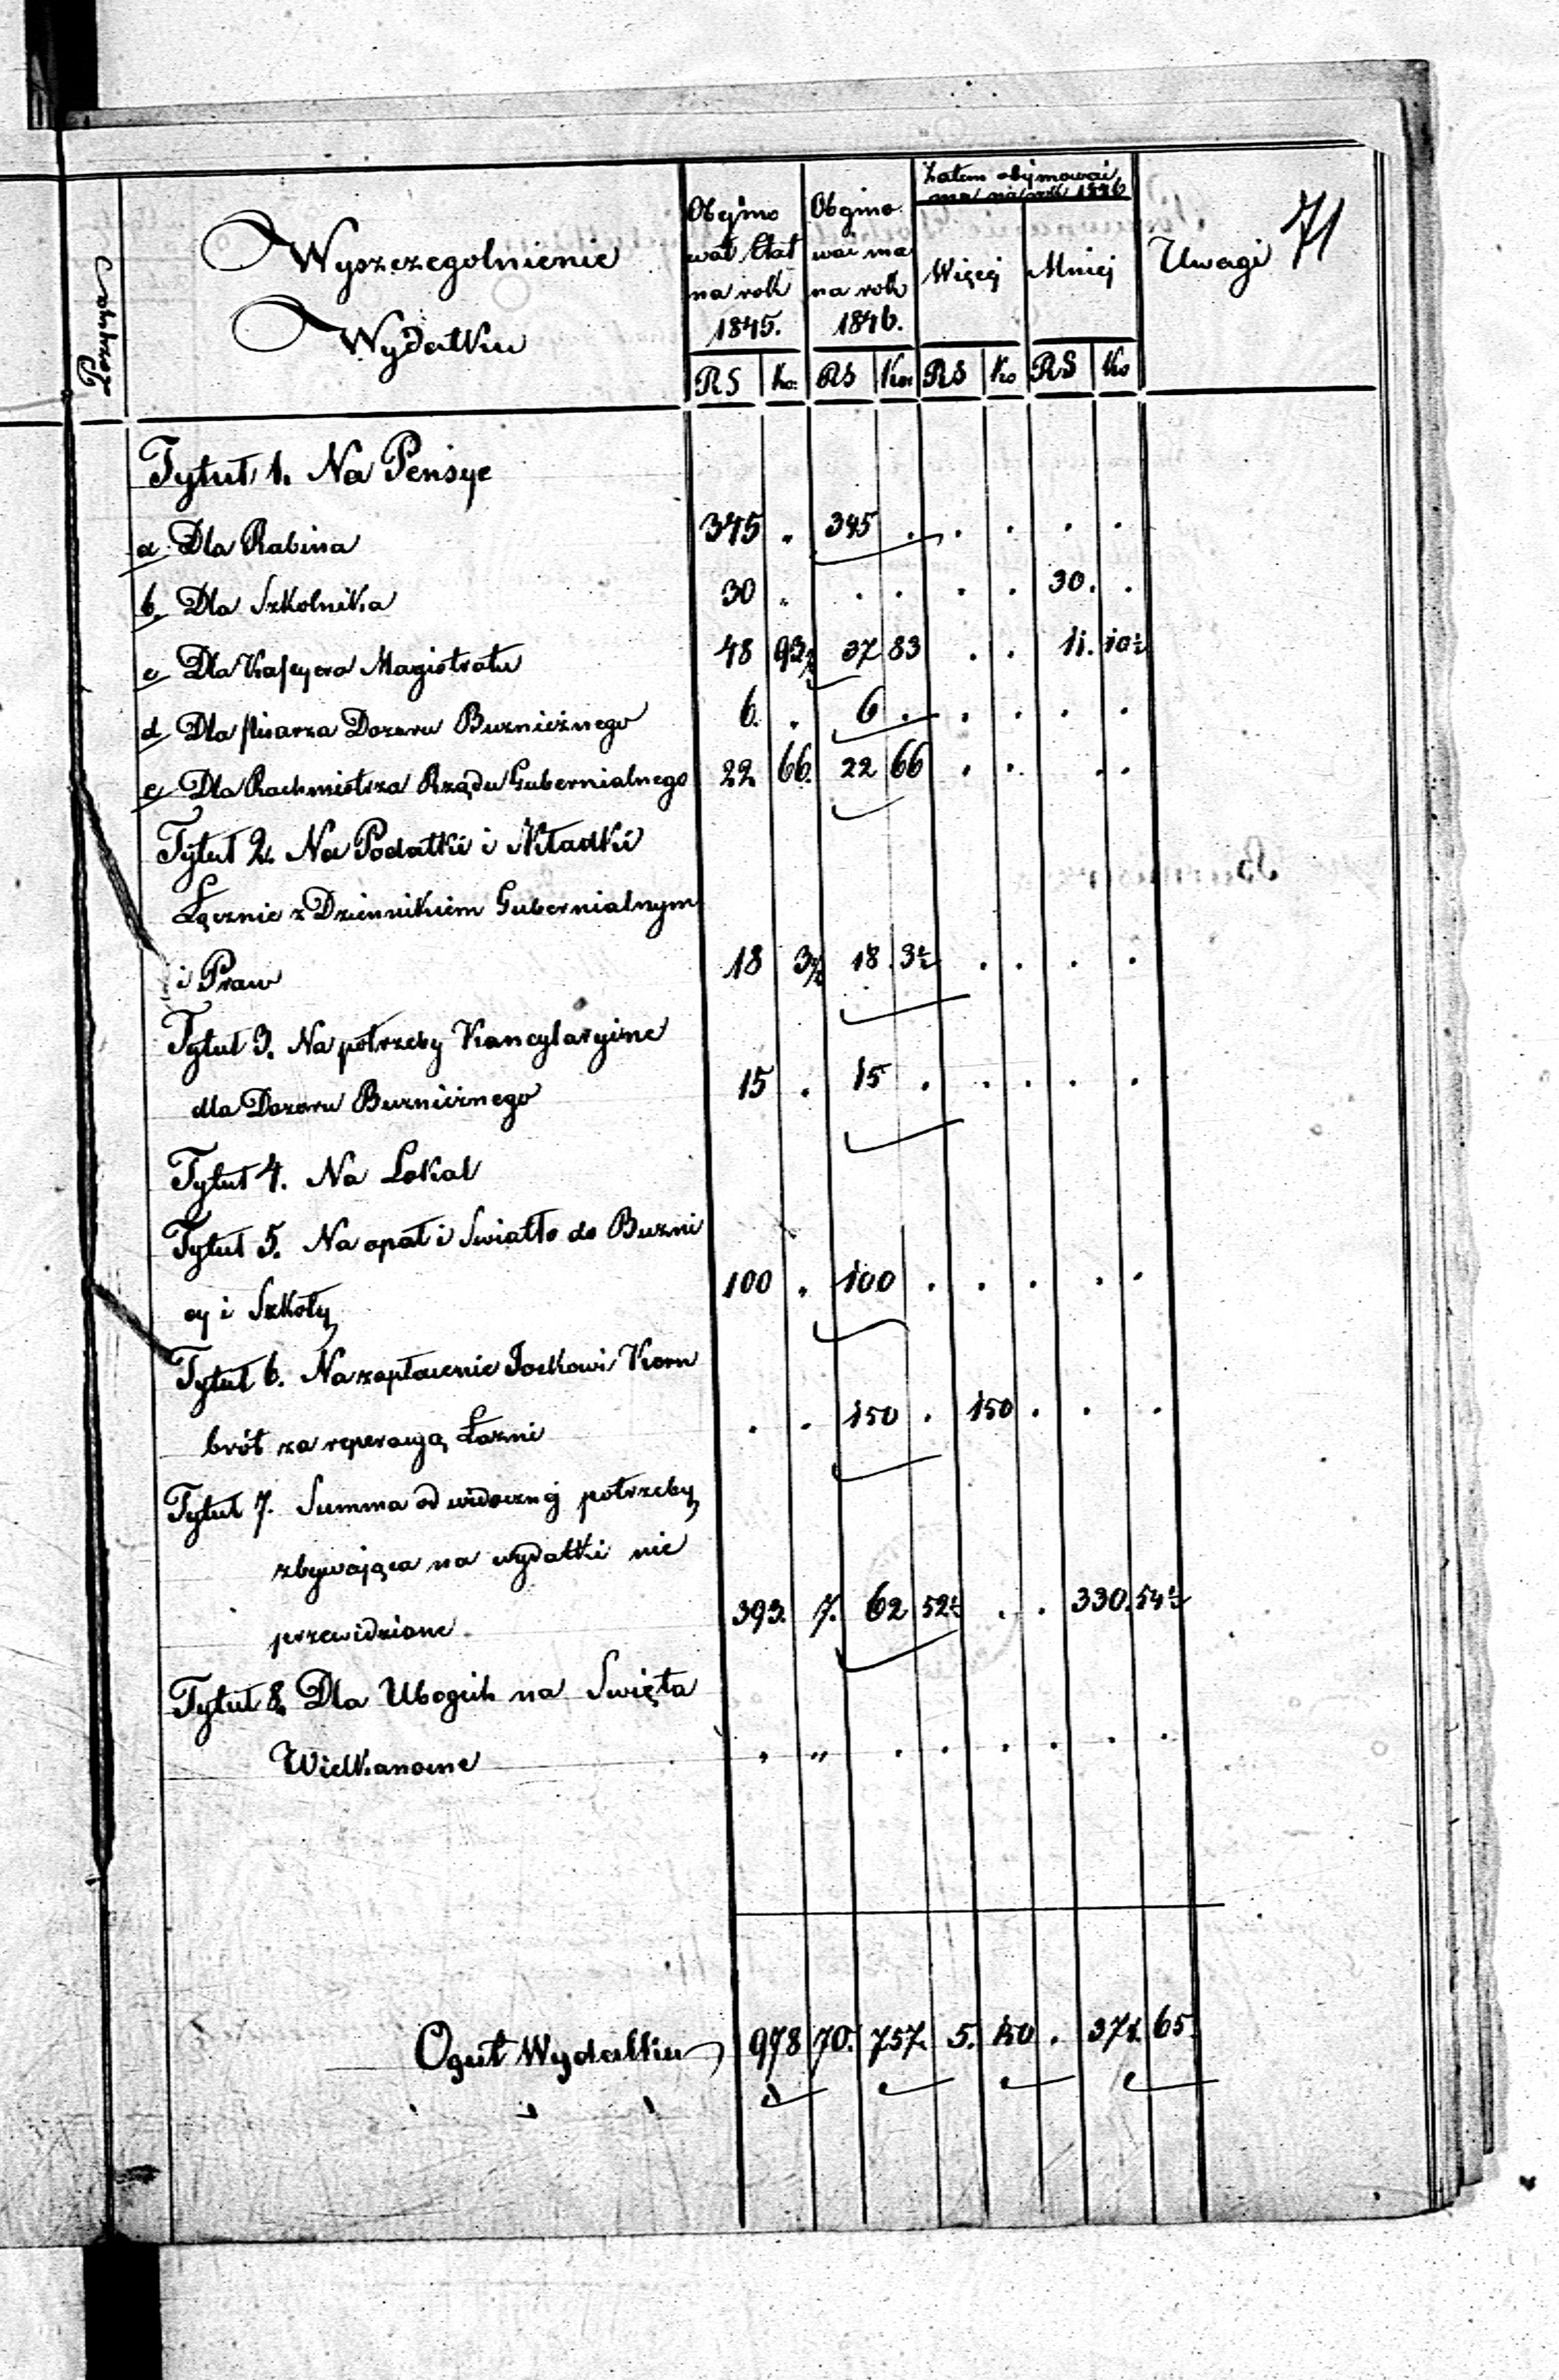 71
Wyszczegolnienie
Wydatku
Obejmo
wał Etat
na rok
1845.
Obejmo
wać ma
na rok
1846.
Zatem obejmować
ma na rok 1846
Więcej
Mniej
Uwagi
RS Ko: RS Kor RS Ko RS Ko
Tytuł 1. Na Pensye
a. Dla Rabina 345 . 345 . . . . .
b. Dla Szkolnika 30 . . . . . 30. .
c Dla Kassyera Magistratu 48 93½ 37 83 . . 11. 10½
d Dla Pisarza Dozoru Bużnicznego 6. . 6 . . . . .
e Dla Rachmistrza Rządu Gubernialnego 22 66. 22 66 . . . .
Tytuł 2. Na Podatki i Składki
Łącznie z Dziennikiem Gubernialnym
i Praw 18 3½ 18. 3½ . . . .
Tytuł 3. Na potrzeby Kancylaryine
dla Dozoru Bużnicznego 15 . 15 . . . . .
Tytuł 4. Na Lokal
Tytuł 5. Na opał i Swiatło do Bużni
cy i Szkoły 100 . 100 . . . . .
Tytuł 6. Na zapłacenie Joskowi Korn
brót za reperacyą Łazni . . 150 . 150 . . .
Tytuł 7. Summa od widoczney potrzeby
zbywająca na wydatki nie
przewidziane 393. 7. 62 52½ . . 330. 54½
Tytuł 8. Dla Ubogich na Swięta
Wielkanocne . „ . . . . . .
Oguł Wydatku 978 70. 757. 5. 150 . 371. 65.